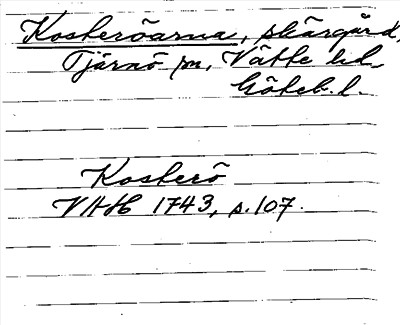 Kosteröarna, skärgård,
Tjärnö sn, Vätte hd
Göteb. l.
Kosterö
VHH 1743, s. 107.